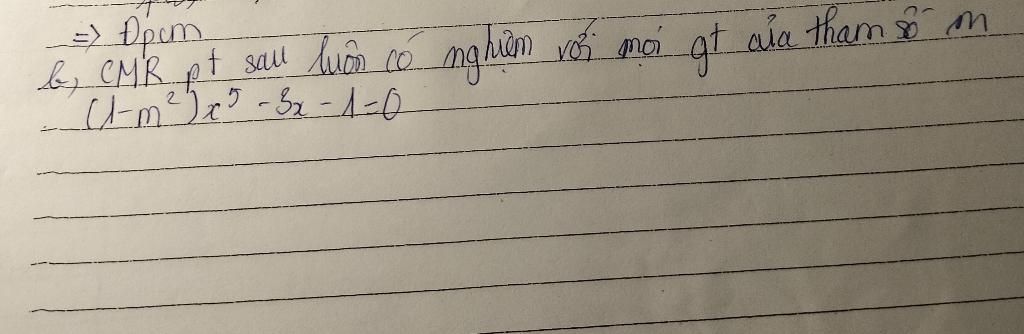 => Đpcm
b, CMR pt sau luôn có nghiệm với mọi gt của tham số m
(1-m²)x⁵ - 3x - 1 = 0